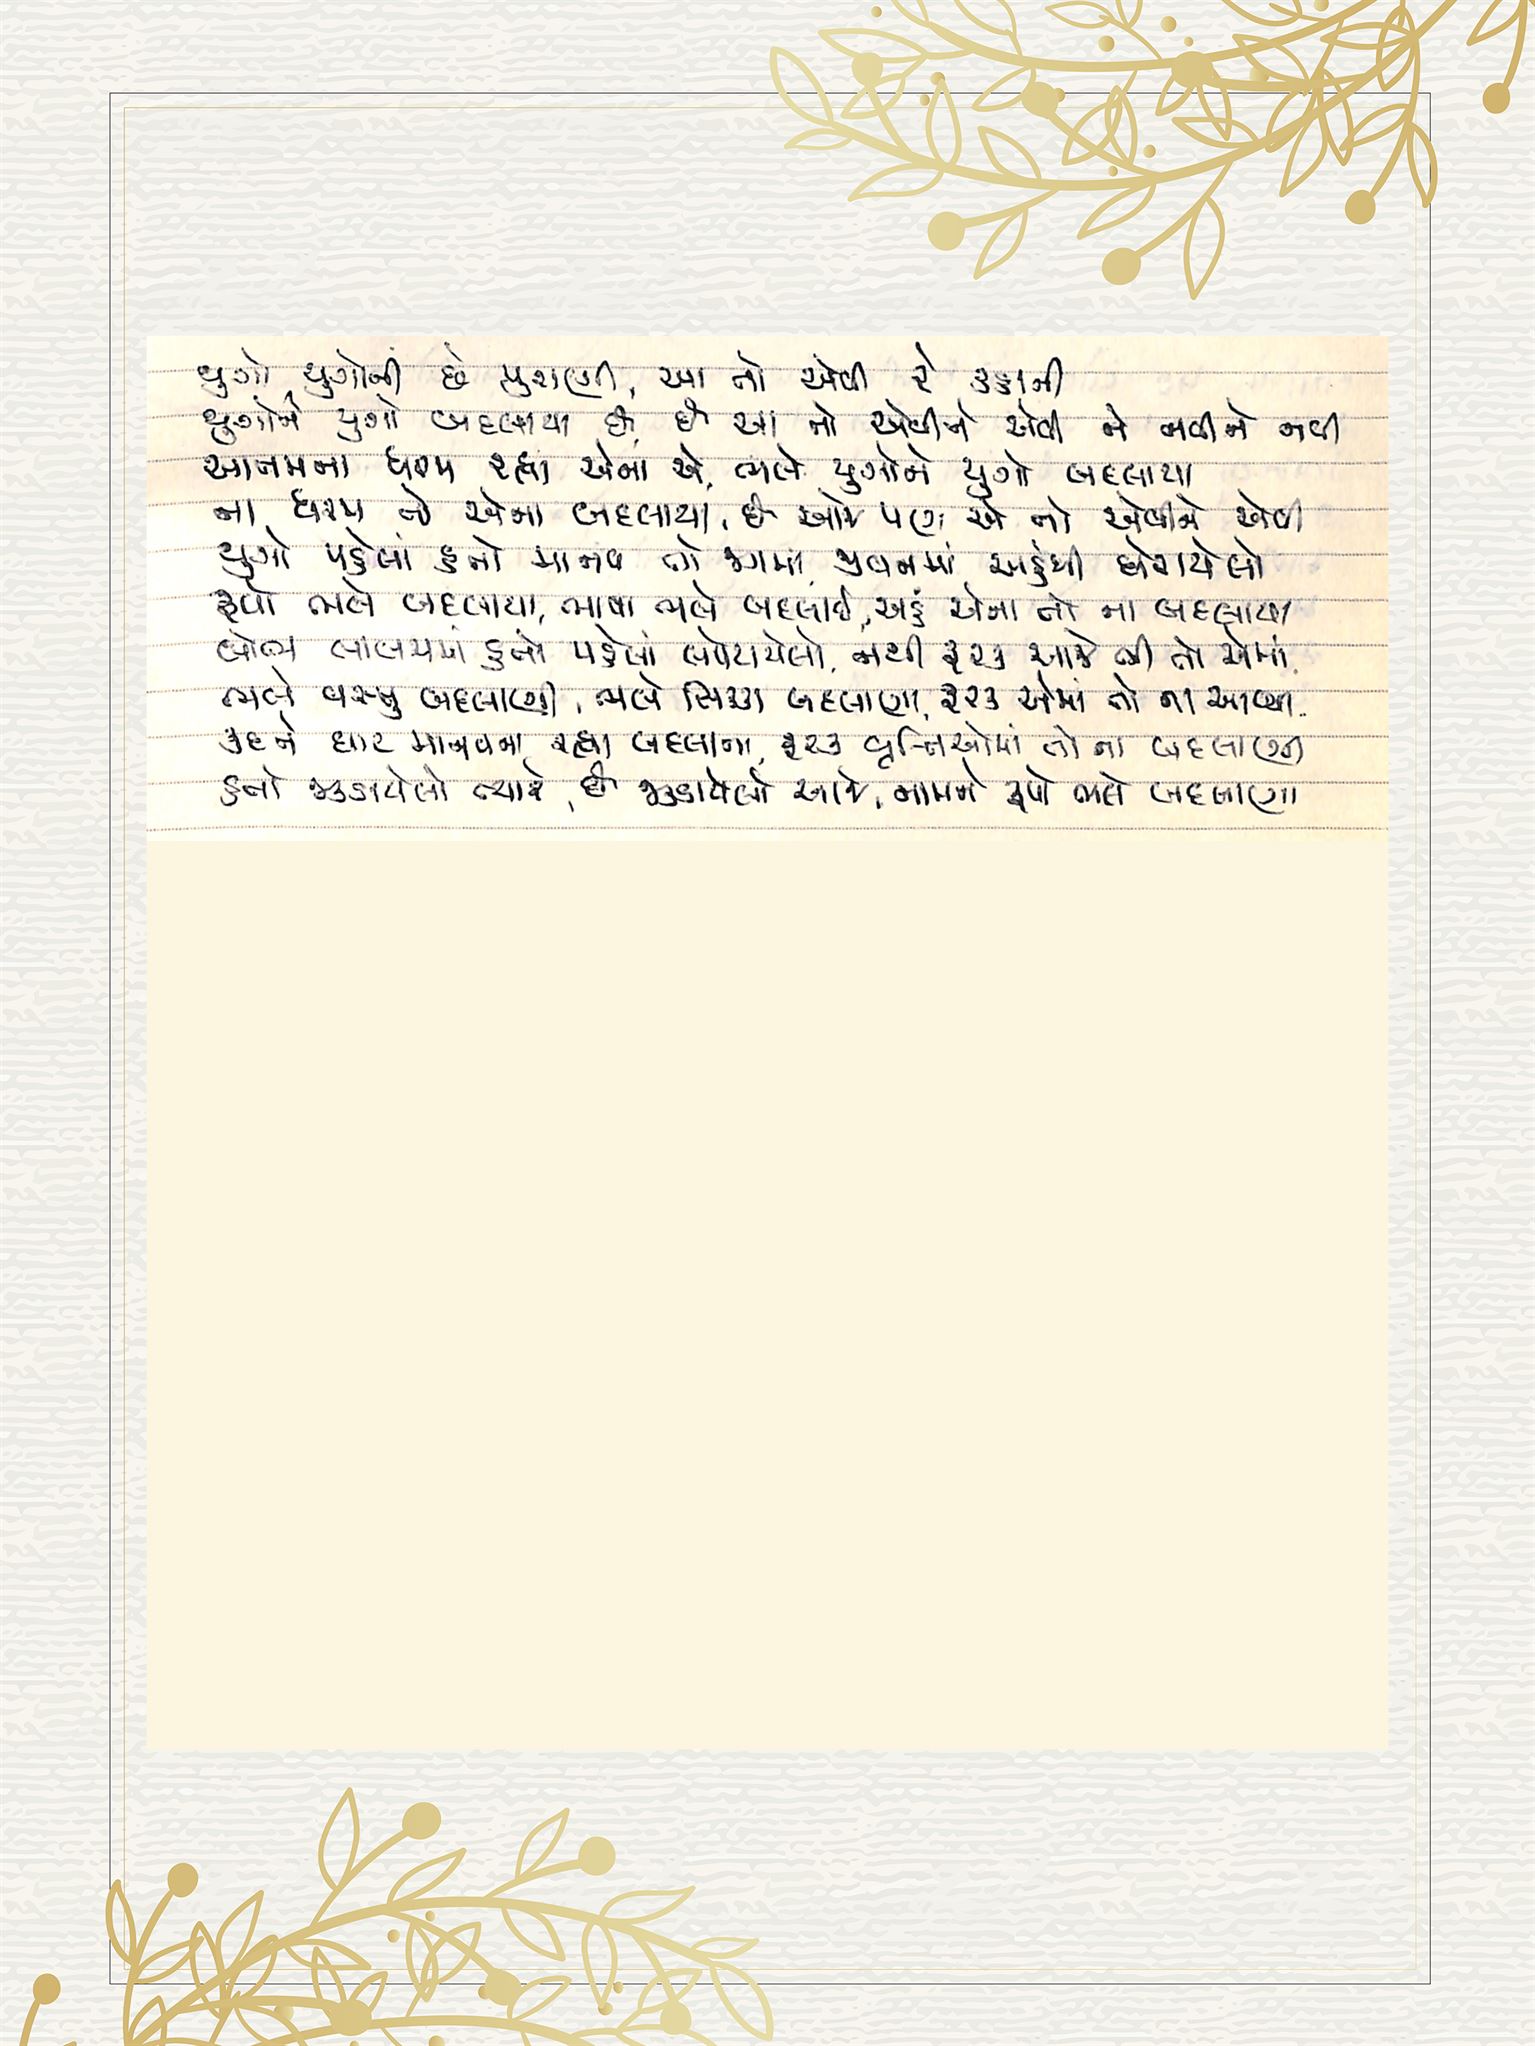 યુગો યુગોની છે પુરાણી, આ તો એવી રે કહાની
યુગોને યુગો બદલાયા છે, છે આ તો એવીને એવી ને નવીને નવી
આતમના ધરમ રહ્યા એના એ, ભલે યુગોને યુગો બદલાયા
ના ધરમ તો એના બદલાયા, છે આજે પણ એ તો એવીને એવી
યુગો પહેલાં હતો માનવ તો જગમાં, જીવનમાં અહંથી ઘેરાયેલો
રૂપો ભલે બદલાયા, ભાષા ભલે બદલાઈ, અહં એના તો ના બદલાયા
લોભ લાલચમાં હતો પહેલાં લપેટાયેલો, નથી ફરક આજે ભી તો એમાં
ભલે વસ્તુ બદલાણી, ભલે સિક્કા બદલાણા, ફરક એમાં તો ના આવ્યા
કદને ઘાટ માનવના રહ્યા બદલાતા, ફરક વૃત્તિઓમાં તો ના બદલાણી
હતો જકડાયેલો ત્યારે, છે જકડાયેલો આજે, નામને રૂપો ભલે બદલાણા